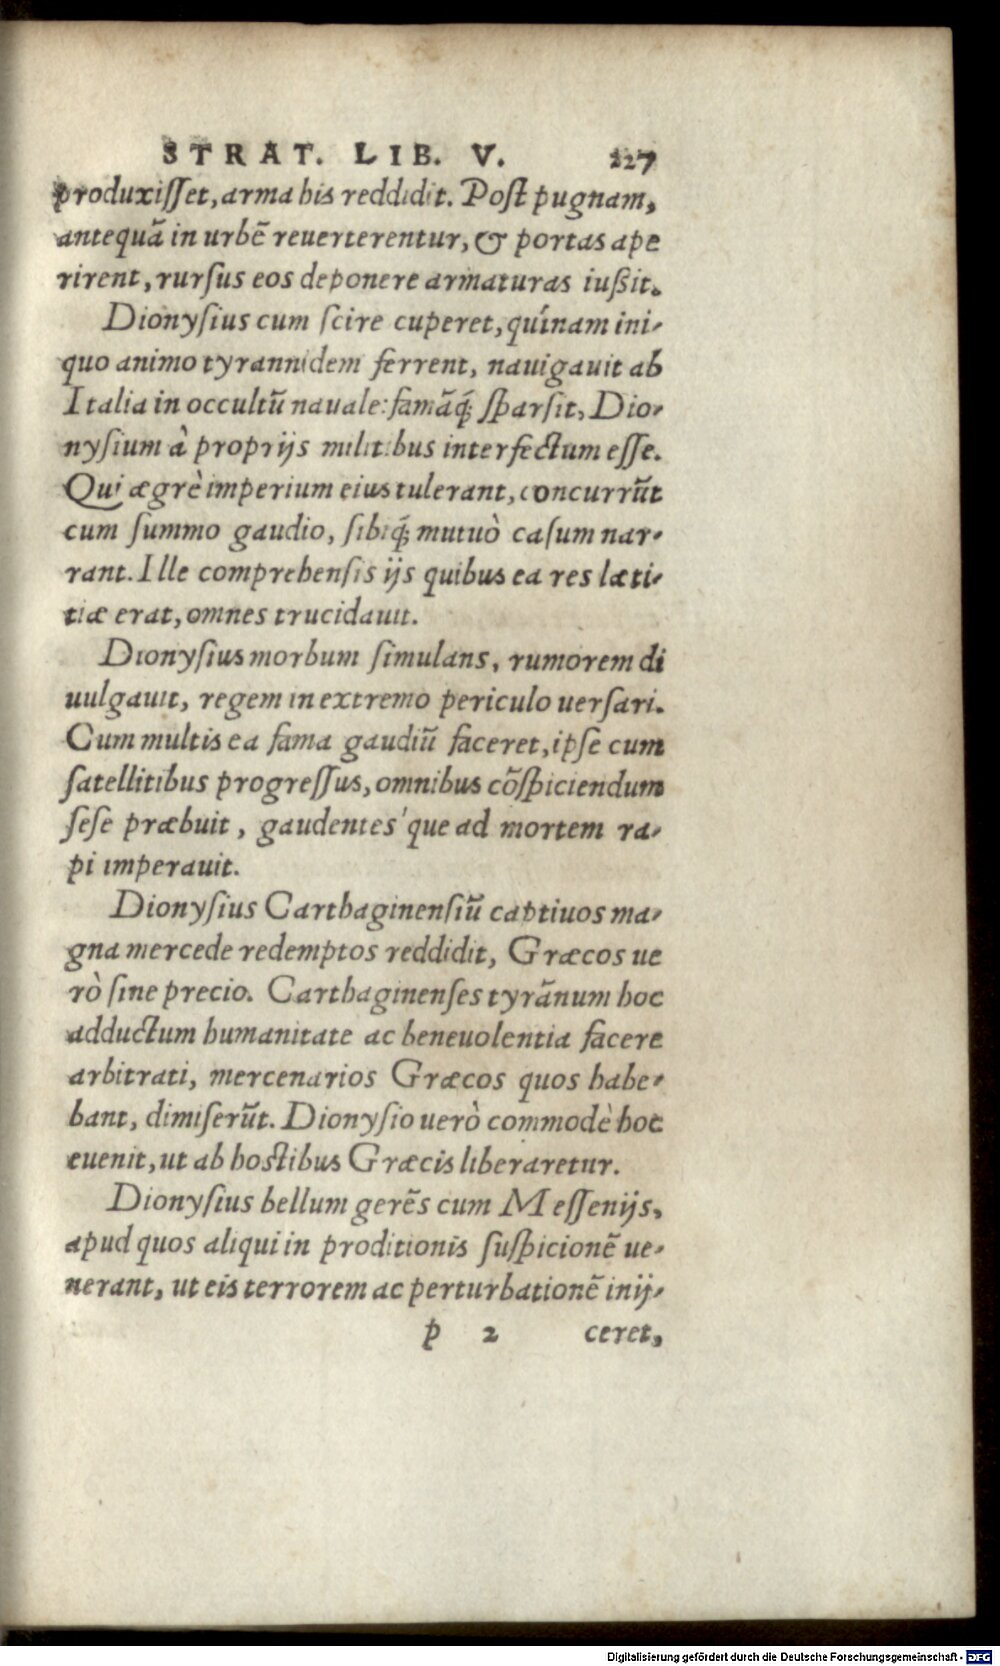 STRAT. LIB. V. 227
produxiſſet, arma his reddidit. Poſt pugnam,
antequā in urbē reuerterentur, & portas ape
rirent, rurſus eos deponere armaturas iußit.
Dionyſius cum ſcire cuperet, quínam ini-
quo animo tyrannidem ferrent, nauigauit ab
Italia in occultū nauale: famāq́; ſparſit, Dio-
nyſium à proprijs militibus interfectum eſſe.
Qui ægrè imperium eius tulerant, concurrūt
cum ſummo gaudio, ſibiq́; mutuò caſum nar-
rant. Ille comprehenſis ijs quibus ea res læti-
tiæ erat, omnes trucidauit.
Dionyſius morbum ſimulans, rumorem di
uulgauit, regem in extremo periculo uerſari.
Cum multis ea fama gaudiū faceret, ipſe cum
ſatellitibus progreſſus, omnibus cōſpiciendum
ſeſe præbuit, gaudentes'que ad mortem ra-
pi imperauit.
Dionyſius Carthaginenſiū captiuos ma-
gna mercede redemptos reddidit, Græcos ue
rò ſine precio. Carthaginenſes tyrānum hoc
adductum humanitate ac beneuolentia facere
arbitrati, mercenarios Græcos quos habe-
bant, dimiſerūt. Dionyſio uerò commodè hoc
euenit, ut ab hoſtibus Græcis liberaretur.
Dionyſius bellum gerēs cum Meſſenijs,
apud quos aliqui in proditionis ſuſpicionē ue-
nerant, ut eis terrorem ac perturbationē inij-
p 2 ceret,
Digitalisierung gefördert durch die Deutsche Forschungsgemeinschaft - DFG